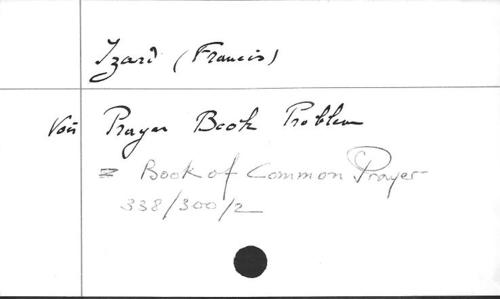 Izard (Francis)
Voir Prayer Book Problem
= Book of Common Prayer
338/300/2